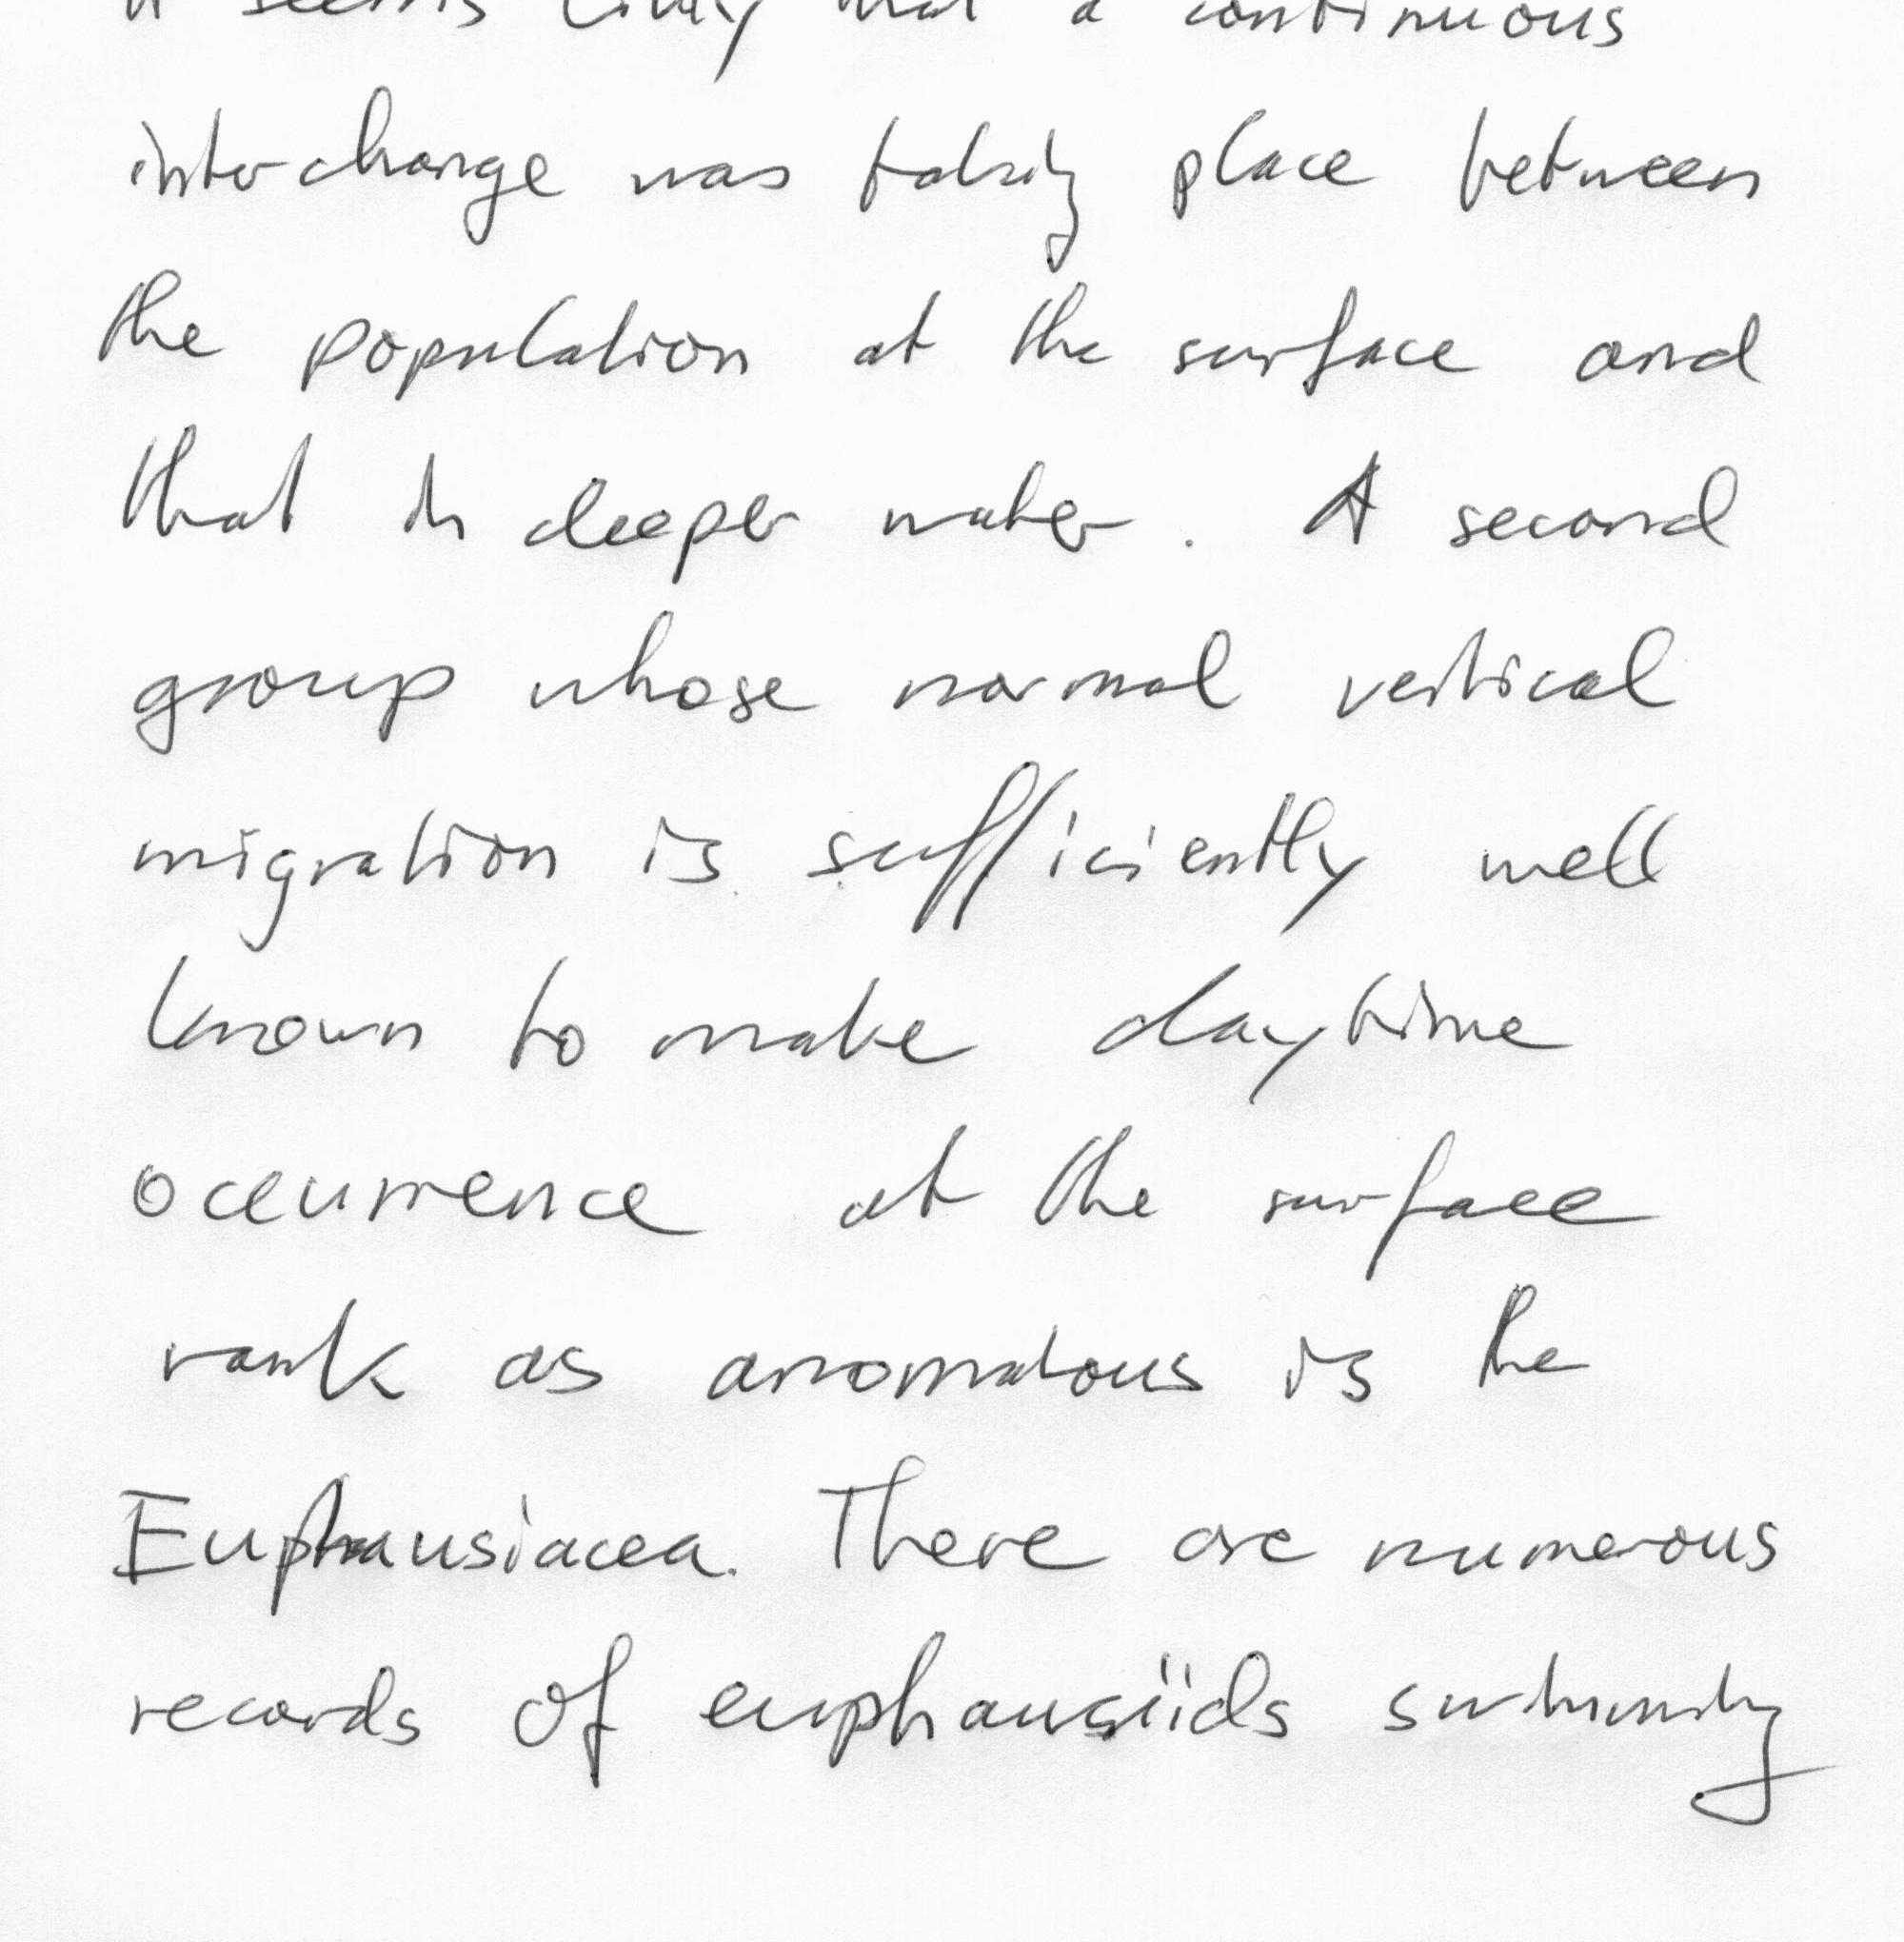 it seems likely that a continuous
interchange was taking place between
the population at the surface and
that in deeper water. A second
group whose normal vertical
migration is sufficiently well
known to make daytime
occurrence at the surface
rank as anomalous is the
Euphausiacea. There are numerous
records of euphausiids swimming